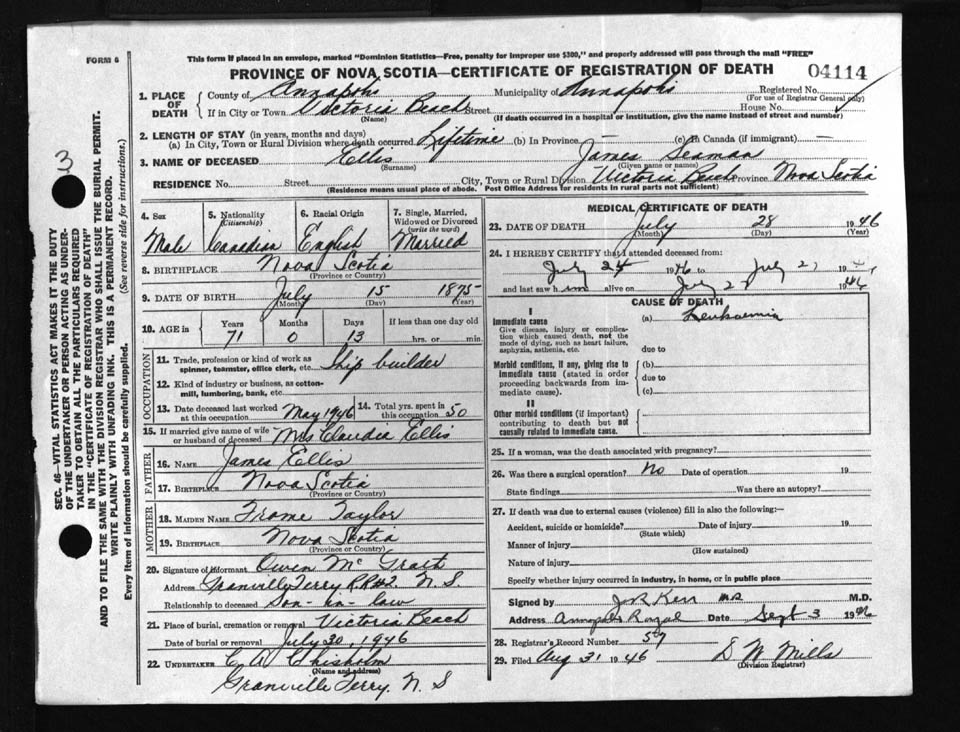 FORM 6
This form if placed in an envelope, marked "Dominion Statistics—Free, penalty for improper use $300," and properly addressed will pass through the mail "FREE"
PROVINCE OF NOVA SCOTIA—CERTIFICATE OF REGISTRATION OF DEATH 04114
1. PLACE OF DEATH County of Annapolis Municipality of Annapolis Registered No.
(For use of Registrar General only)
If in City or Town Victoria Beach Street House No.
(Name) (If death occurred in a hospital or institution, give the name instead of street and number)
2. LENGTH OF STAY (in years, months and days)
(a) In City, Town or Rural Division where death occurred Lifetime (b) In Province — (c) In Canada (if immigrant) —
3. NAME OF DECEASED Ellis James Seaman
(Surname) (Given name or names)
RESIDENCE No. Street City, Town or Rural Division Victoria Beach Province Nova Scotia
(Residence means usual place of abode. Post Office Address for residents in rural parts not sufficient)
4. Sex Male
5. Nationality (Citizenship) Canadian
6. Racial Origin English
7. Single, Married, Widowed or Divorced (write the word) Married
8. BIRTHPLACE Nova Scotia
(Province or Country)
9. DATE OF BIRTH July 15 1875
(Month) (Day) (Year)
10. AGE in Years Months Days If less than one day old
71 0 13 hrs. or min.
OCCUPATION
11. Trade, profession or kind of work as spinner, teamster, office clerk, etc. Ship builder
12. Kind of industry or business, as cotton-mill, lumbering, bank, etc.
13. Date deceased last worked at this occupation May 1946
14. Total yrs. spent in this occupation 50
15. If married give name of wife or husband of deceased Mrs Claudia Ellis
FATHER
16. NAME James Ellis
17. BIRTHPLACE Nova Scotia
(Province or Country)
MOTHER
18. MAIDEN NAME Frome Taylor
19. BIRTHPLACE Nova Scotia
(Province or Country)
20. Signature of informant Owen McGrath
Address Granville Ferry RR#2. N.S.
Relationship to deceased Son-in-law
21. Place of burial, cremation or removal Victoria Beach
Date of burial or removal July 30, 1946
22. UNDERTAKER C A Chisholm
(Name and address)
Granville Ferry. N.S
MEDICAL CERTIFICATE OF DEATH
23. DATE OF DEATH July 28 1946
(Month) (Day) (Year)
24. I HEREBY CERTIFY that I attended deceased from:
July 24 1946 to July 27 19
and last saw him alive on July 28 1946
CAUSE OF DEATH
I
Immediate cause (a) Leukaemia
Give disease, injury or complication which caused death, not the mode of dying, such as heart failure, asphyxia, asthenia, etc. due to
Morbid conditions, if any, giving rise to immediate cause (stated in order proceeding backwards from immediate cause). (b)
due to
(c)
II
Other morbid conditions (if important) contributing to death but not causally related to immediate cause.
25. If a woman, was the death associated with pregnancy?
26. Was there a surgical operation? No Date of operation 19
State findings Was there an autopsy?
27. If death was due to external causes (violence) fill in also the following:—
Accident, suicide or homicide? Date of injury 19
(State which)
Manner of injury
(How sustained)
Nature of injury
Specify whether injury occurred in industry, in home, or in public place
Signed by J R Kerr MD M.D.
Address Annapolis Royal Date Sept 3 1946
28. Registrar's Record Number 57
29. Filed Aug 31 1946 D W Mills
(Division Registrar)
3
SEC. 46—VITAL STATISTICS ACT MAKES IT THE DUTY
OF THE UNDERTAKER OR PERSON ACTING AS UNDER-
TAKER TO OBTAIN ALL THE PARTICULARS REQUIRED
IN THE "CERTIFICATE OF REGISTRATION OF DEATH"
AND TO FILE THE SAME WITH THE DIVISION REGISTRAR WHO SHALL ISSUE THE BURIAL PERMIT.
WRITE PLAINLY WITH UNFADING INK. THIS IS A PERMANENT RECORD.
Every item of information should be carefully supplied. (See reverse side for instructions.)